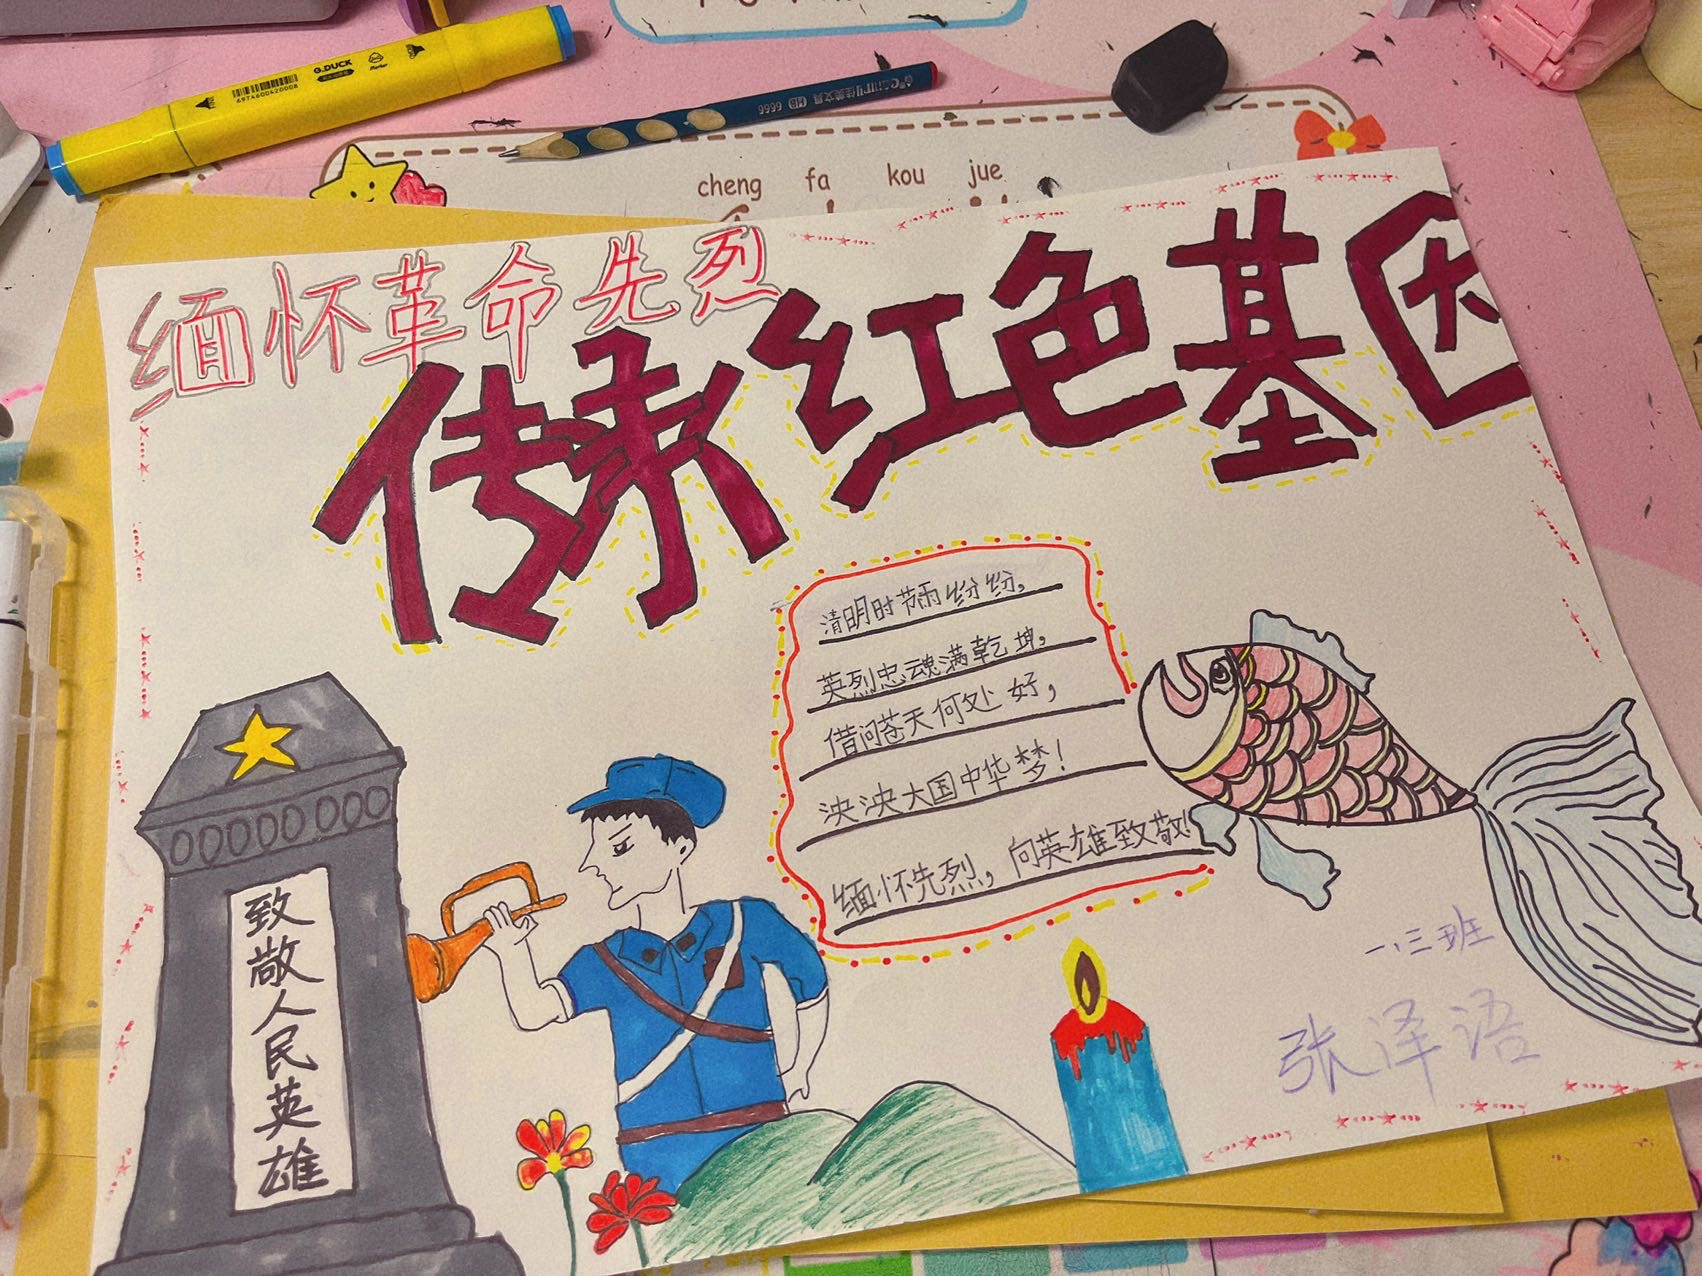 G.DUCK
Marker
6974604420008
HB 6666
cheng fa kou jue
缅怀革命先烈
传承红色基因
清明时节雨纷纷，
英烈忠魂满乾坤，
借问苍天何处好，
泱泱大国中华梦！
缅怀先烈，向英雄致敬！
致敬人民英雄
一、三班
张泽语